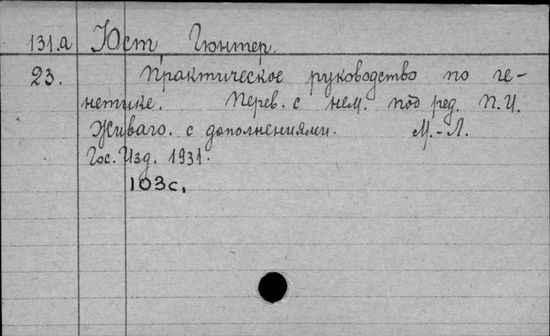 131.а Юст, Гюнтер.
23. Практическое руководство по ге-
нетике. Перев. с нем. под ред. П.И.
Живаго. с дополнениями. М.-Л.
Гос. Изд. 1931.
103с.